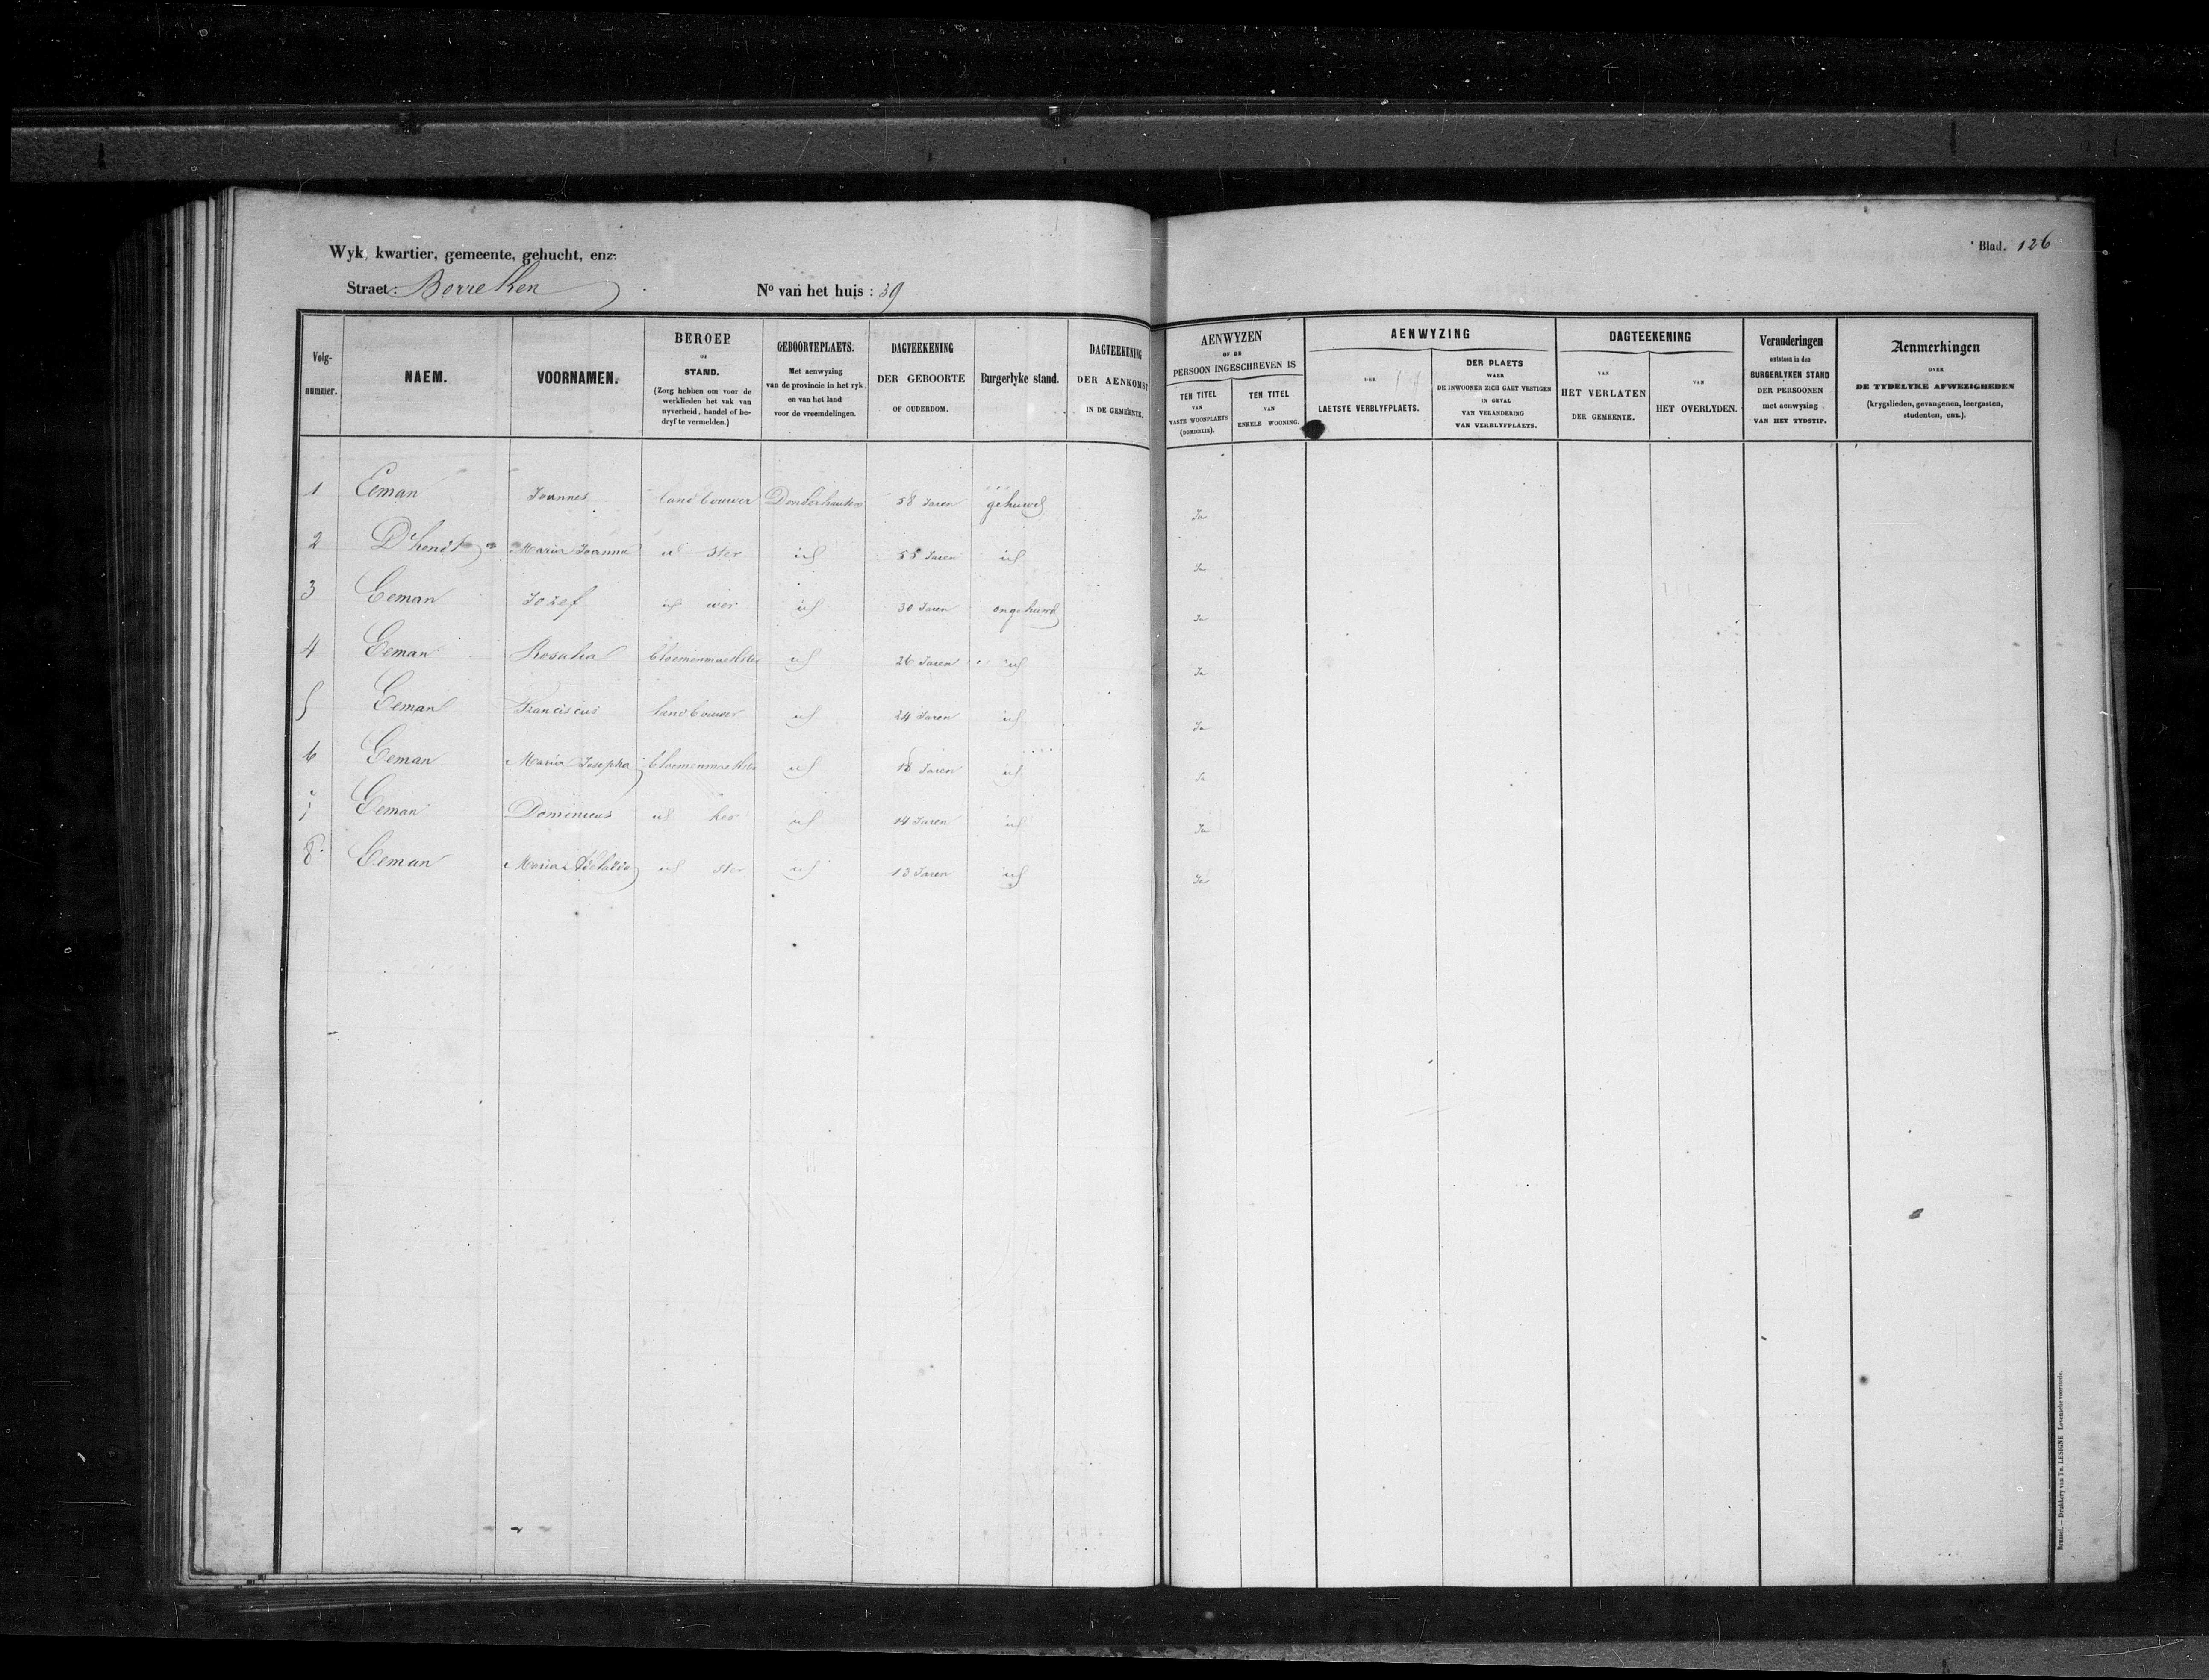 Wyk, kwartier, gemeente, gehucht, enz:
Blad. 126
Straet: Borreken
Nº van het huis : 39
Volg-nummer.
NAEM.
VOORNAMEN.
BEROEP
OF
STAND.
(Zorg hebben om voor de
werklieden het vak van
nyverheid, handel of be-
dryf te vermelden.)
GEBOORTEPLAETS.
Met aenwyzing
van de provincie in het ryk
en van het land
voor de vreemdelingen.
DAGTEEKENING
DER GEBOORTE
OF OUDERDOM.
Burgerlyke stand.
DAGTEEKENING
DER AENKOMST
IN DE GEMEENTE.
AENWYZEN
OF DE
PERSOON INGESCHREVEN IS
TEN TITEL
VAN
VASTE WOONPLAETS
(DOMICILIE).
TEN TITEL
VAN
ENKELE WOONING.
AENWYZING
DER
LAETSTE VERBLYFPLAETS.
DER PLAETS
WAER
DE INWOONER ZICH GAET VESTIGEN
IN GEVAL
VAN VERANDERING
VAN VERBLYFPLAETS.
DAGTEEKENING
VAN
HET VERLATEN
DER GEMEENTE.
VAN
HET OVERLYDEN.
Veranderingen
ontstaen in den
BURGERLYKEN STAND
DER PERSOONEN
met aenwyzing
VAN HET TYDSTIP.
Aenmerkingen
OVER
DE TYDELYKE AFWEZIGHEDEN
(krygslieden, gevangenen, leergasten,
studenten, enz.).
1 Eeman Joannes landbouwer 58 Jaren gehuwd Ja
2 D'hondt Maria Joanna id ster id 55 Jaren id Ja
3 Eeman Jozef id wer id 30 Jaren ongehuwd Ja
4 Eeman Rosalia bloemenmaekster id 26 Jaren id Ja
5 Eeman Franciscus landbouwer id 24 Jaren id Ja
6 Eeman Maria Josepha bloemenmaekster id 18 Jaren id Ja
7 Eeman Dominicus id ker id 14 Jaren id Ja
8 Eeman Maria id ster id 13 Jaren id Ja
Brussel. — Drukkery van Th. LESIGNE Lovensche voorstede.